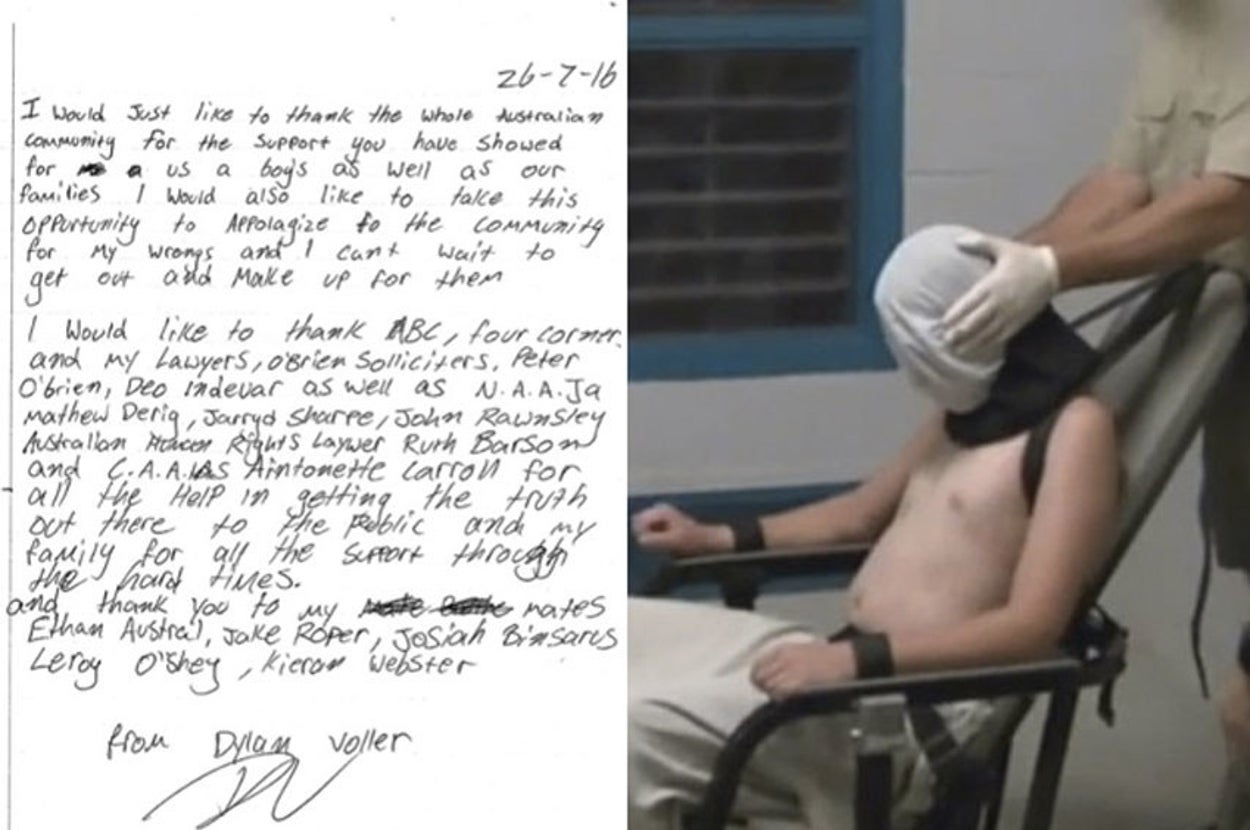 26-7-16
I would Just like to thank the whole Australian
community for the support you have showed
for us a boys as well as our
families I would also like to take this
opportunity to Appolagize to the community
for My wrongs and I cant wait to
get out and Make up for them
I would like to thank ABC, four corner.
and my Lawyers, O'Brien Solliciters, Peter
O'brien, Deo indevar as well as N.A.A.Ja
Mathew Derig, Jarryd Sharpe, John Rawnsley
Australian Human Rights Laywer Ruth Barson
and C.A.A.LAS Aintonette Carroll for
all the HelP in getting the truth
out there to the Public and my
family for all the support through
the hard times.
and thank you to my mates
Ethan Austral, Jake Roper, Josiah Binsarus
Leroy O'Shey, Kieran Webster
from Dylan Voller